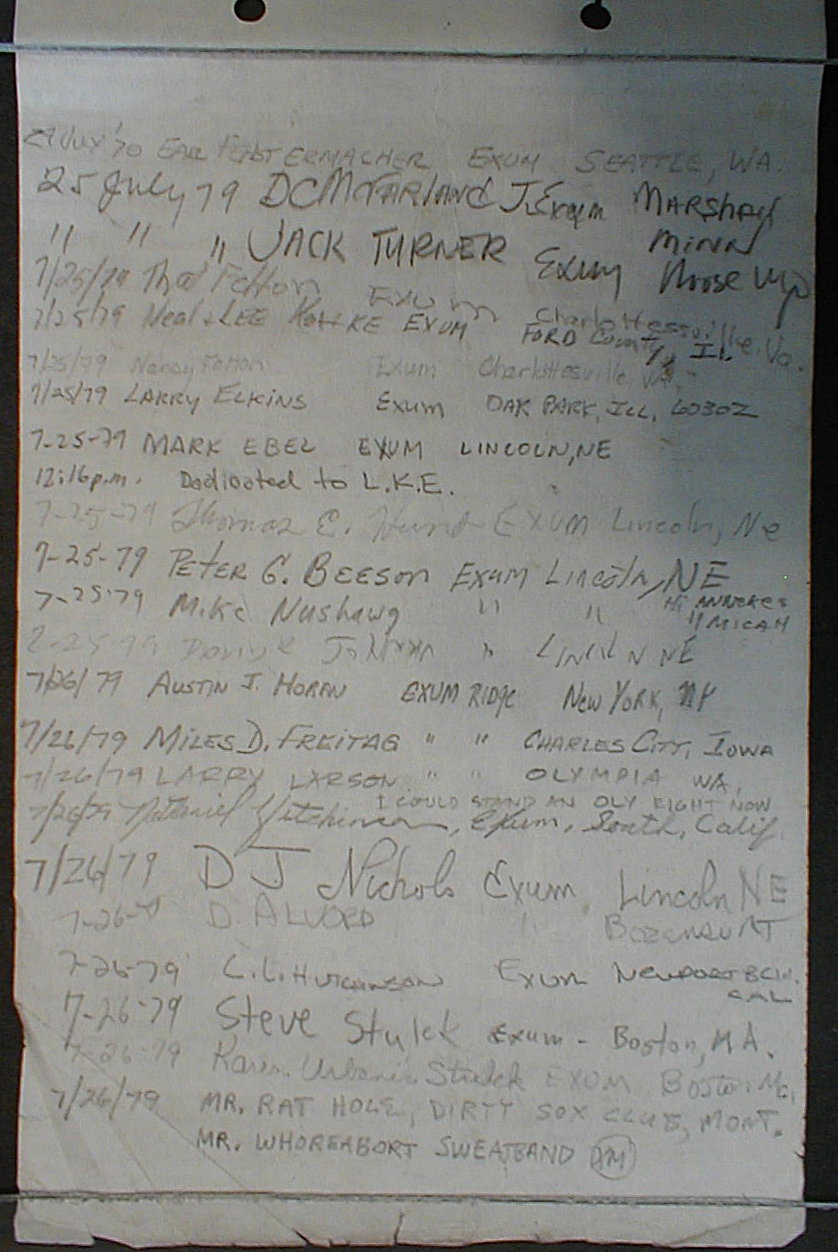 EXUM SEATTLE, WA.
25 July 79 DC McFARLAND J. Exum MARSHALL
" " " JACK TURNER Exum MINN
Moose Wyo
7/25/79 Thad Fetton EXUM Charlottesville, Va.
7/25/79 Neal & LEE EXUM FORD County, IL.
7/25/79 Nancy Exum Charlottesville, VA.
7/25/79 LARRY ELKINS Exum OAK PARK, ILL, 60302
7-25-79 MARK EBEL EXUM LINCOLN, NE
12:16 p.m. Dedicated to L.K.E.
7-25-79 Thomas E. EXUM Lincoln, Ne
7-25-79 PETER G. BEESON EXUM Lincoln, NE
7-25-79 Mike " " Hi
" MICAH
" LINCOLN NE
7/26/79 AUSTIN J. HORAN EXUM RIDGE New YORK, NY
7/26/79 MILES D. FREITAG " " CHARLES CITY, IOWA
7/26/79 LARRY LARSON " " OLYMPIA WA.
I COULD STAND AN OLY RIGHT NOW
7/26/79 Exum, South, Calif.
7/26/79 DJ Nichols Exum, Lincoln NE
7-26-79 D. ALVORD " BOZEMAN MT
7-26-79 C.L. HUTCHINSON EXUM NEWPORT BCH.
CAL
7-26-79 Steve Stulck Exum - Boston, MA.
7-26-79 Karen Stulck EXUM Boston Ma.
7/26/79 MR. RAT HOLE, DIRTY SOX CLUB, MONT.
MR. WHOREABORT SWEATBAND